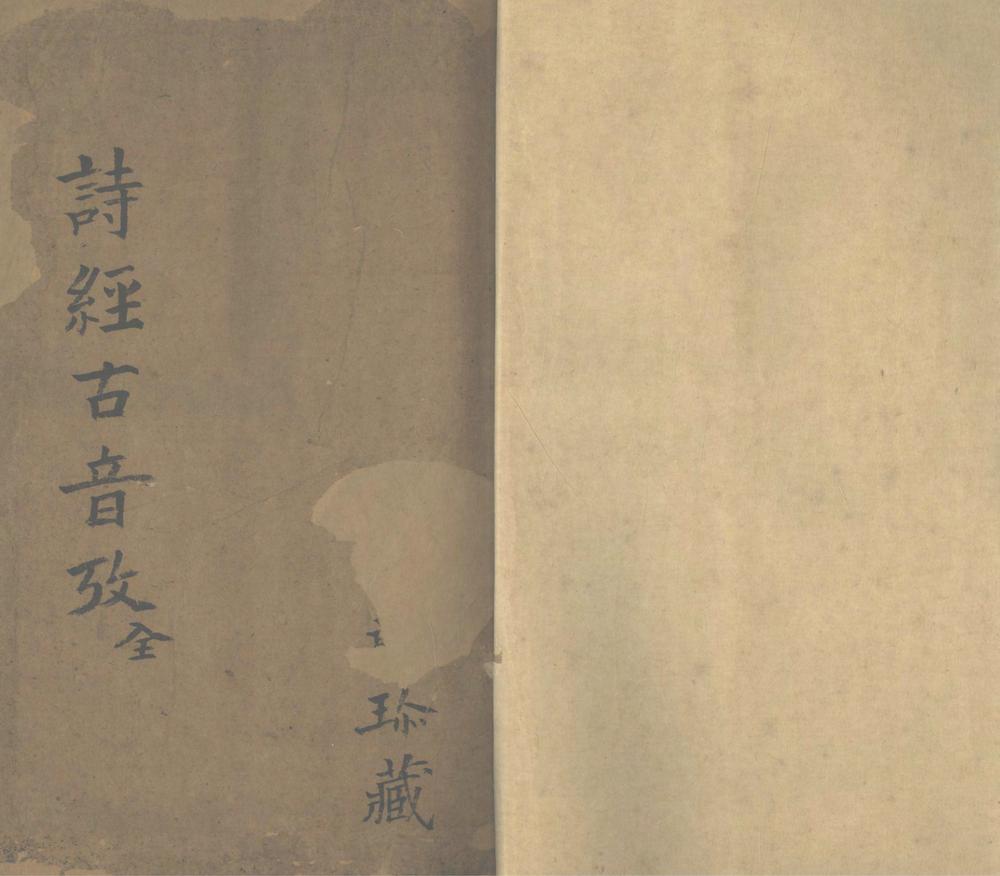 詩經古音攷全
珎藏